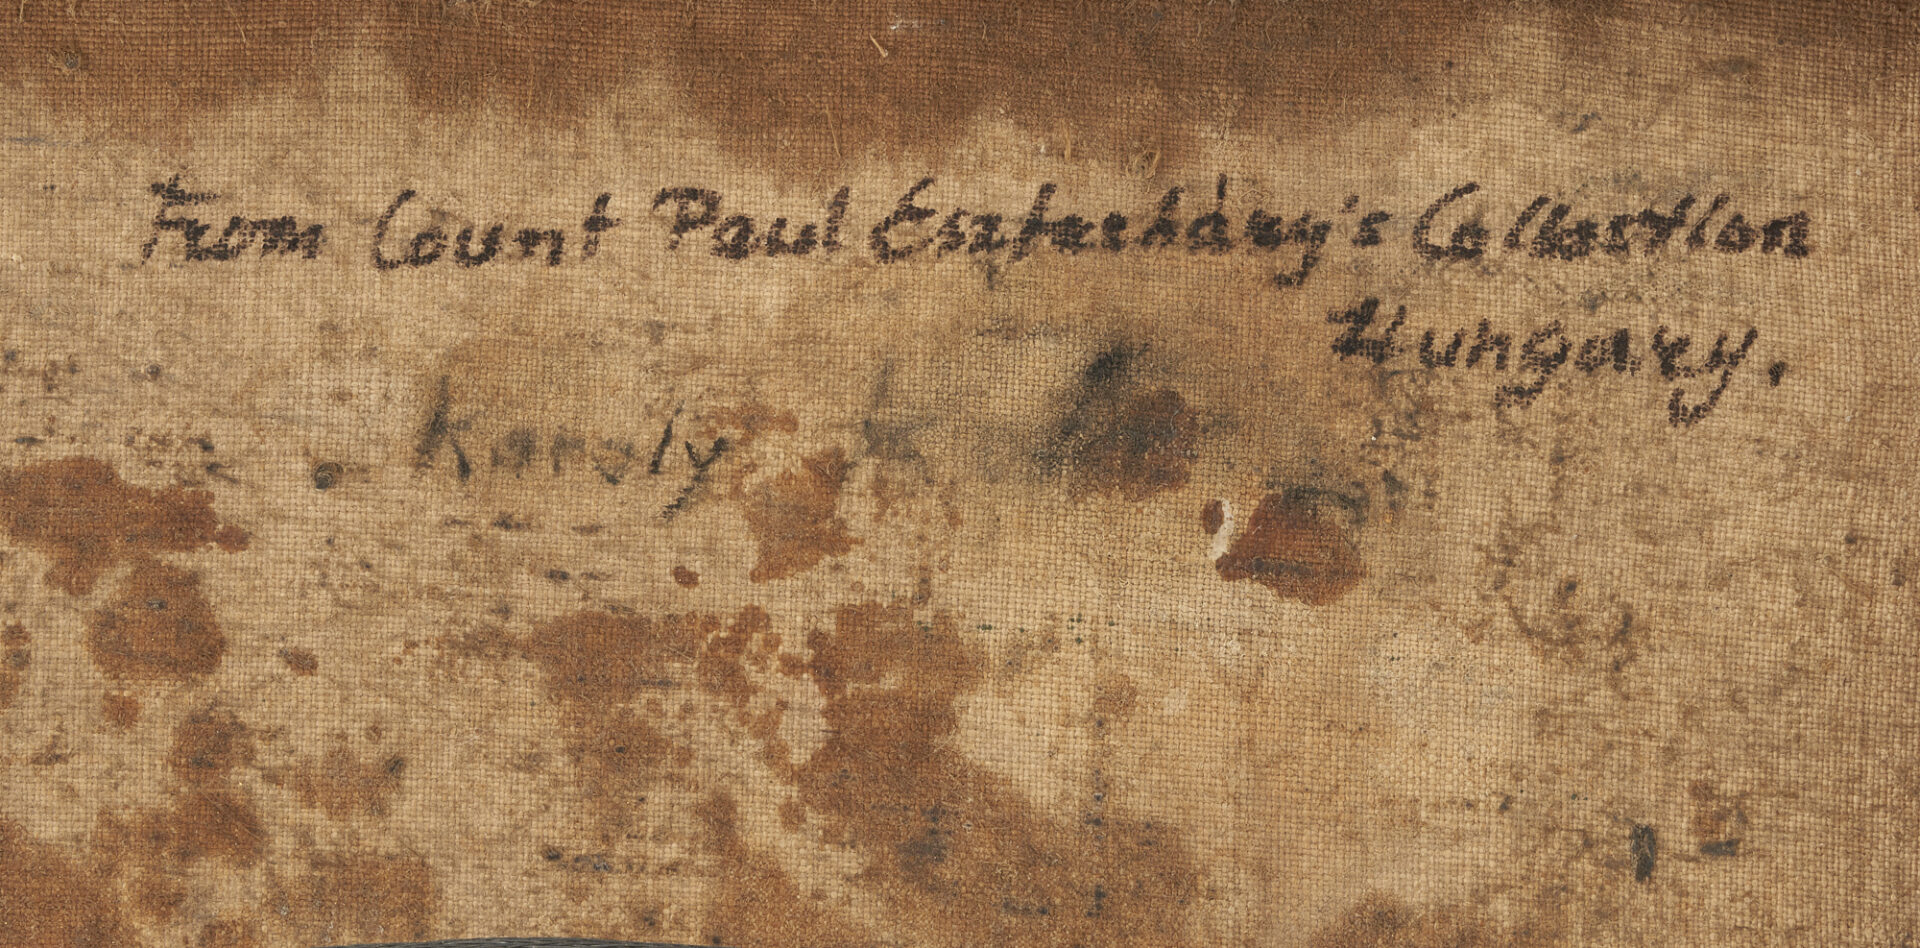 From Count Paul Eszterházy's Collection
Hungary.
Karoly